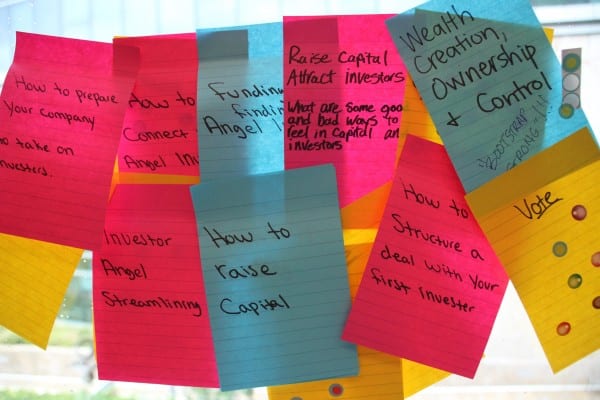 How to prepare
Your company
to take on
investers.
How to
Connect
Angel In
Funding
findin
Angel I
Raise Capital
Attract investors
What are some goo
and Bad ways to
reel in Capital an
investors
Wealth
Creation,
Ownership
& Control
"BOOTSTRAP
STRONG"!!
Investor
Angel
Streamlining
How to
raise
Capital
How to
Structure a
deal with your
first invester
Vote